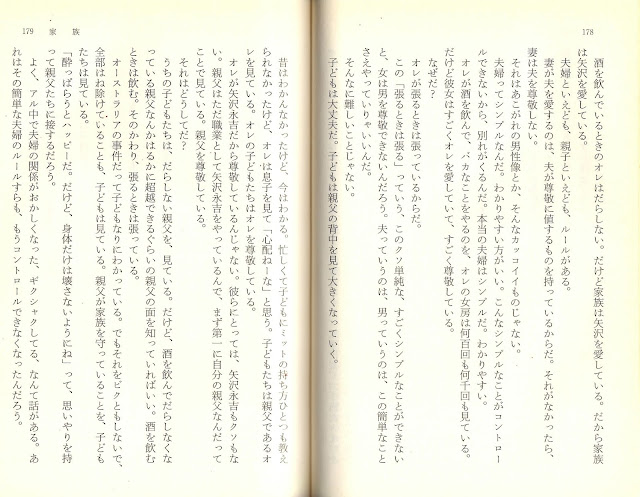 178
酒を飲んでいるときのオレはだらしない。だけど家族は矢沢を愛している。だから家族
は矢沢を愛している。
夫婦といえども、親子といえども、ルールがある。
妻が夫を愛するのは、夫が尊敬に値するものを持っているからだ。それがなかったら、
妻は夫を尊敬しない。
それはあこがれの男性像とか、そんなカッコイイものじゃない。
夫婦ってシンプルなんだ。わかりやすい方がいい。こんなシンプルなことがコントロー
ルできないから、別れがくるんだ。本当の夫婦はシンプルだ。わかりやすい。
オレが酒を飲んで、バカなことをやるのを、オレの女房は何百回も何千回も見ている。
だけど彼女はすごくオレを愛していて、すごく尊敬している。
なぜだ?
オレが張るときは張っているからだ。
この「張るときは張る」っていう、このクソ単純な、すごくシンプルなことができない
と、女は男を尊敬できないんだろう。夫っていうのは、男っていうのは、この簡単なこと
さえやっていりゃいいんだ。
そんなに難しいことじゃない。
子どもは大丈夫だ。子どもは親父の背中を見て大きくなっていく。
179 家族
昔はわかんなかったけど、今はわかる。忙しくて子どもにミットの持ち方ひとつも教え
られなかったけど、オレは息子を見て「心配ねーな」と思う。子どもたちは親父であるオ
レを見ている。オレの子どもたちはオレを尊敬している。
オレが矢沢永吉だから尊敬しているんじゃない。彼らにとっては、矢沢永吉もクソもな
い。親父はただ職業として矢沢永吉をやっているんで、まず第一に自分の親父なんだって
ことで見ている。親父を尊敬している。
それはどうしてだ?
うちの子どもたちは、だらしない親父を、見ている。だけど、酒を飲んでだらしなくな
っている親父なんかはるかに超越できるぐらいの親父の面を知っていればいい。酒を飲む
ときは飲む。そのかわり、張るときは張っている。
オーストラリアの事件だって子どもなりにわかっている。でもそれをビクともしないで、
全部はね除けていることも、子どもは見ている。親父が家族を守っていることを、子ども
たちは見ている。
「酔っぱらうとハッピーだ。だけど、身体だけは壊さないようにね」って、思いやりを持
って親父たちに接するだろう。
よく、アル中で夫婦の関係がおかしくなった、ギクシャクしてる、なんて話がある。あ
れはその簡単な夫婦のルールすらも、もうコントロールできなくなったんだろう。